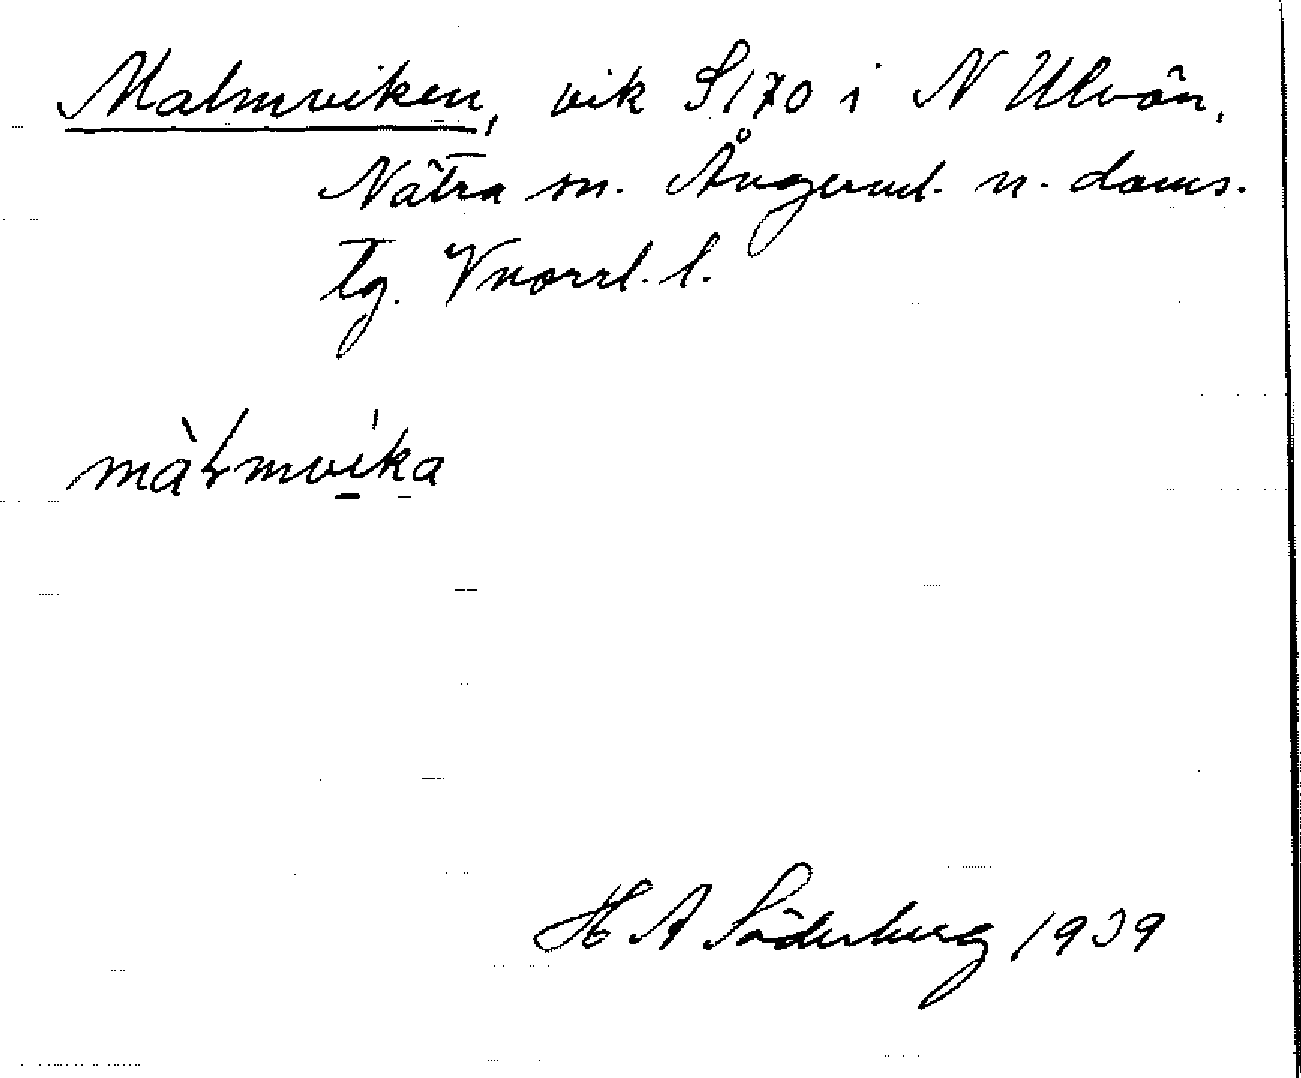 Malmviken, vik S170 i N Ulvön,
Nätra sn. Ångerml. n. doms.
tg. Vnorrl. l.
màɫmvíka
H A Söderberg 1939